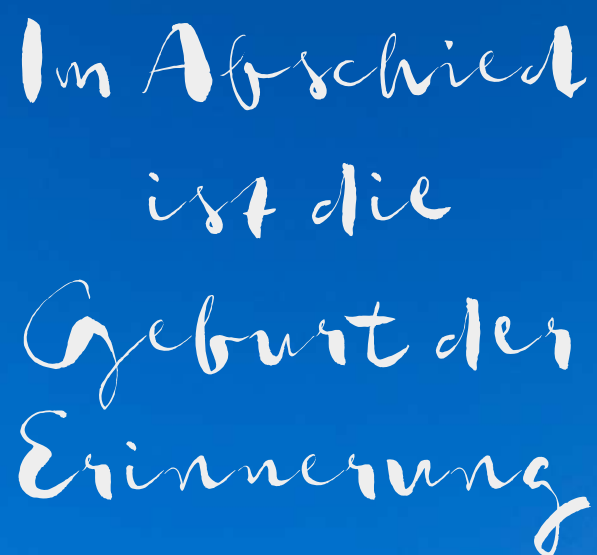 Im Abschied
ist die
Geburt der
Erinnerung